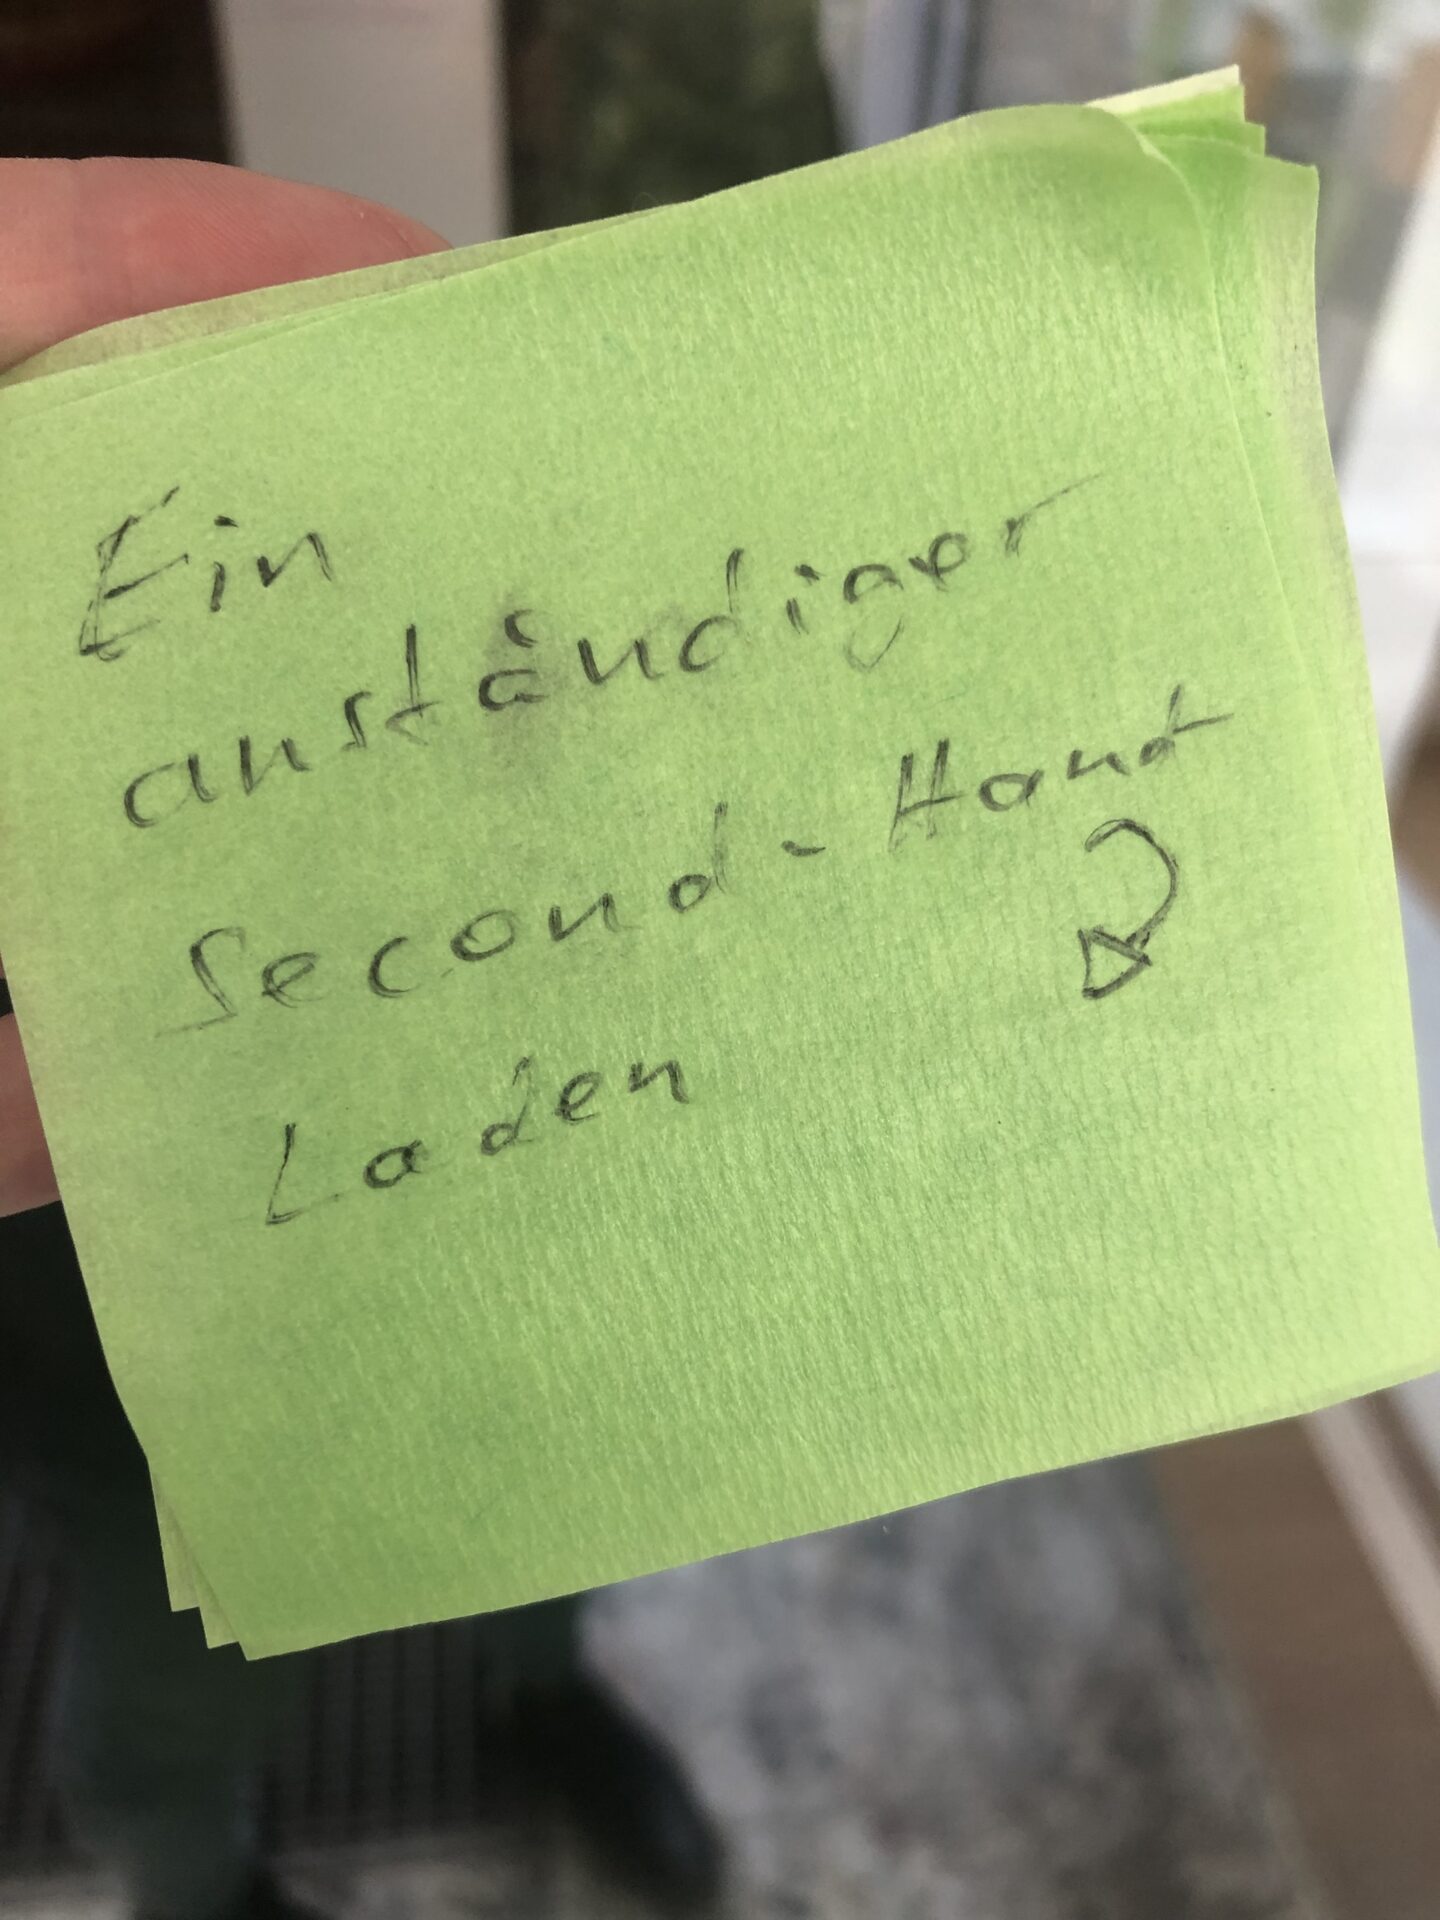 Ein
anständiger
Second-Hand
Laden